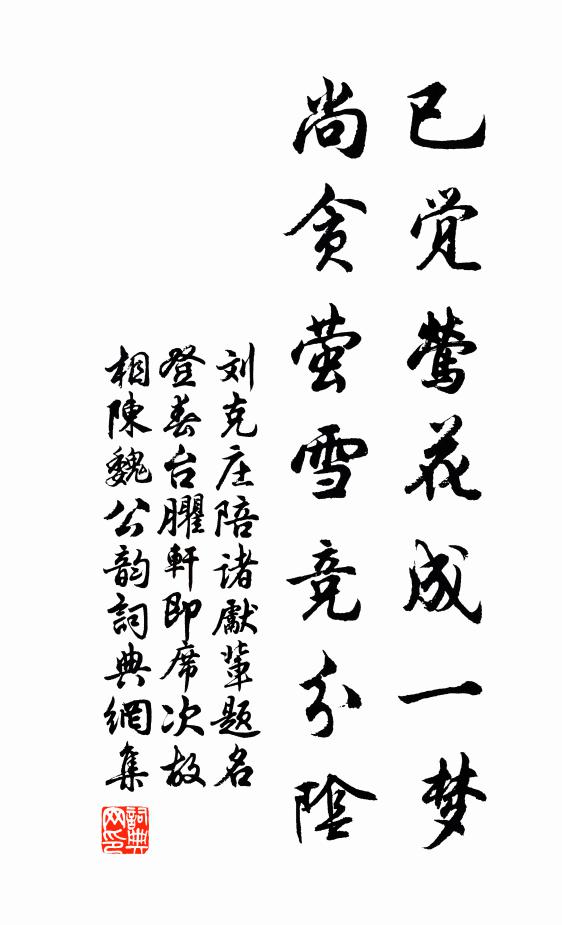 已觉莺花成一梦
尚贪萤雪竞分陰
刘克庄陪诸獻辈题名
登春台臞軒即席次故
相陳魏公韵詞典網集
詞典
网印